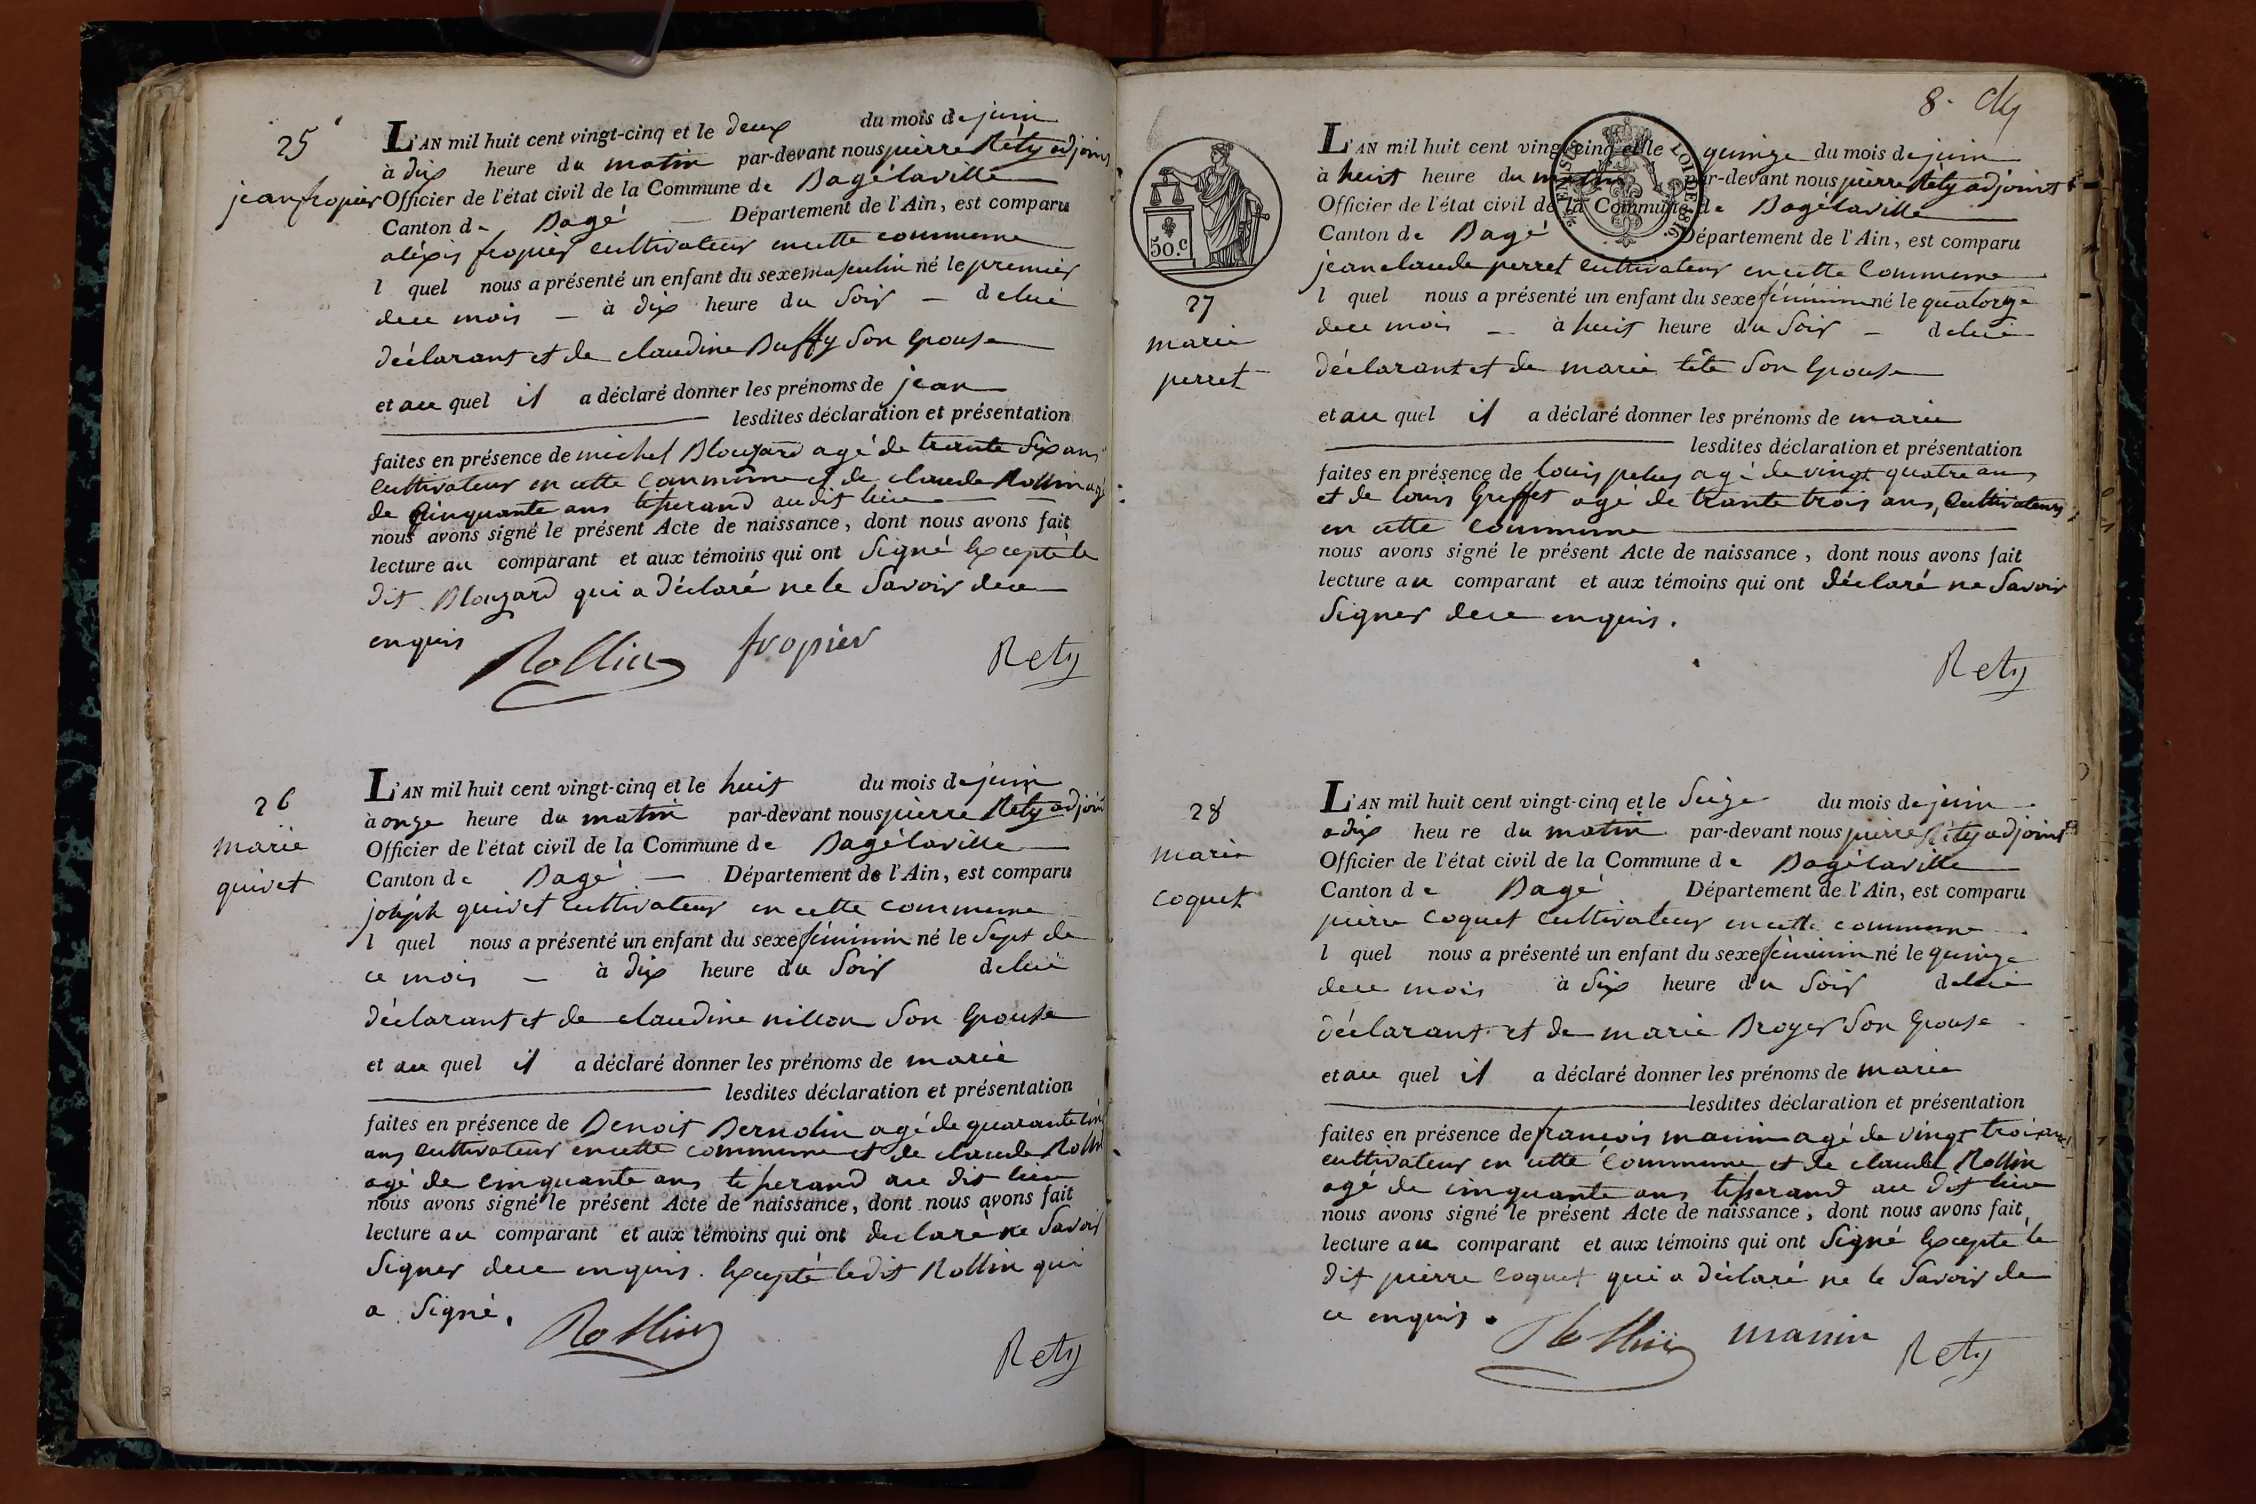 25
jean fropier
L'AN mil huit cent vingt-cinq et le deux du mois de juin
à dix heure du matin par-devant nous pierre Réty adjoint
Officier de l'état civil de la Commune de Bagélaville
Canton de Bagé Département de l'Ain, est comparu
aléxis fropier cultivateur en cette commune
l quel nous a présenté un enfant du sexe masculin né le premier
de ce mois à dix heure du Soir de lui
déclarant et de claudine Buffy Son Epouse
et au quel il a déclaré donner les prénoms de jean
lesdites déclaration et présentation
faites en présence de michel Blouzard agé de trante Six ans
Cultivateur en cette Commune et de claude Rollin agé
de Cinquante ans tisserand audit lieu
nous avons signé le présent Acte de naissance, dont nous avons fait
lecture au comparant et aux témoins qui ont Signé Excepté le
dit Blouzard qui a déclaré ne le Savoir de ce
enquis
Rollin fropier Rety
26
marie
quivet
L'AN mil huit cent vingt-cinq et le huit du mois de juin
à onze heure du matin par-devant nous pierre Réty adjoint
Officier de l'état civil de la Commune de Bagélaville
Canton de Bagé Département de l'Ain, est comparu
joseph quivet cultivateur en cette commune
l quel nous a présenté un enfant du sexe féminin né le Sept de
ce mois à dix heure du Soir de lui
déclarant et de claudine nillon Son Epouse
et au quel il a déclaré donner les prénoms de marie
lesdites déclaration et présentation
faites en présence de Benoit Bernolin agé de quarante cinq
ans cultivateur en cette commune et de claude Rollin
agé de cinquante ans tisserand au dit lieu
nous avons signé le présent Acte de naissance, dont nous avons fait
lecture au comparant et aux témoins qui ont declaré ne Savoir
Signer de ce enquis. Excepté ledit Rollin qui
a Signé.
Rollin
Rety
8.
50.C
27
marie
perret
L'AN mil huit cent vingt-cinq et le quinze du mois de juin
à huit heure du matin par-devant nous pierre Réty adjoint
Officier de l'état civil de la Commune de Bagélaville
Canton de Bagé Département de l'Ain, est comparu
jean claude perret Cultivateur en cette Commune
l quel nous a présenté un enfant du sexe féminin né le quatorze
de ce mois à huit heure du Soir de lui
déclarant et de marie tête Son Epouse
et au quel il a déclaré donner les prénoms de marie
lesdites déclaration et présentation
faites en présence de louis pelus agé de vingt quatre ans
et de louis Greffet agé de trante trois ans, Cultivateurs
en cette commune
nous avons signé le présent Acte de naissance, dont nous avons fait
lecture au comparant et aux témoins qui ont déclaré ne Savoir
Signer de ce enquis.
Rety
28
marie
coquet
L'AN mil huit cent vingt-cinq et le Seize du mois de juin
a dix heu re du matin par-devant nous pierre Réty adjoint
Officier de l'état civil de la Commune de Bagélaville
Canton de Bagé Département de l'Ain, est comparu
pierre coquet cultivateur en cette commune
l quel nous a présenté un enfant du sexe féminin né le quinze
de ce mois à Six heure du Soir de lui
déclarant et de marie Broyer Son Epouse
et au quel il a déclaré donner les prénoms de marie
lesdites déclaration et présentation
faites en présence de francois manin agé de vingt trois ans
cultivateur en cette Commune et de claude Rollin
agé de cinquante ans tisserand au dit lieu
nous avons signé le présent Acte de naissance, dont nous avons fait
lecture au comparant et aux témoins qui ont Signé Excepté le
dit pierre coquet qui a déclaré ne le Savoir de
ce enquis.
Rollin manin Rety